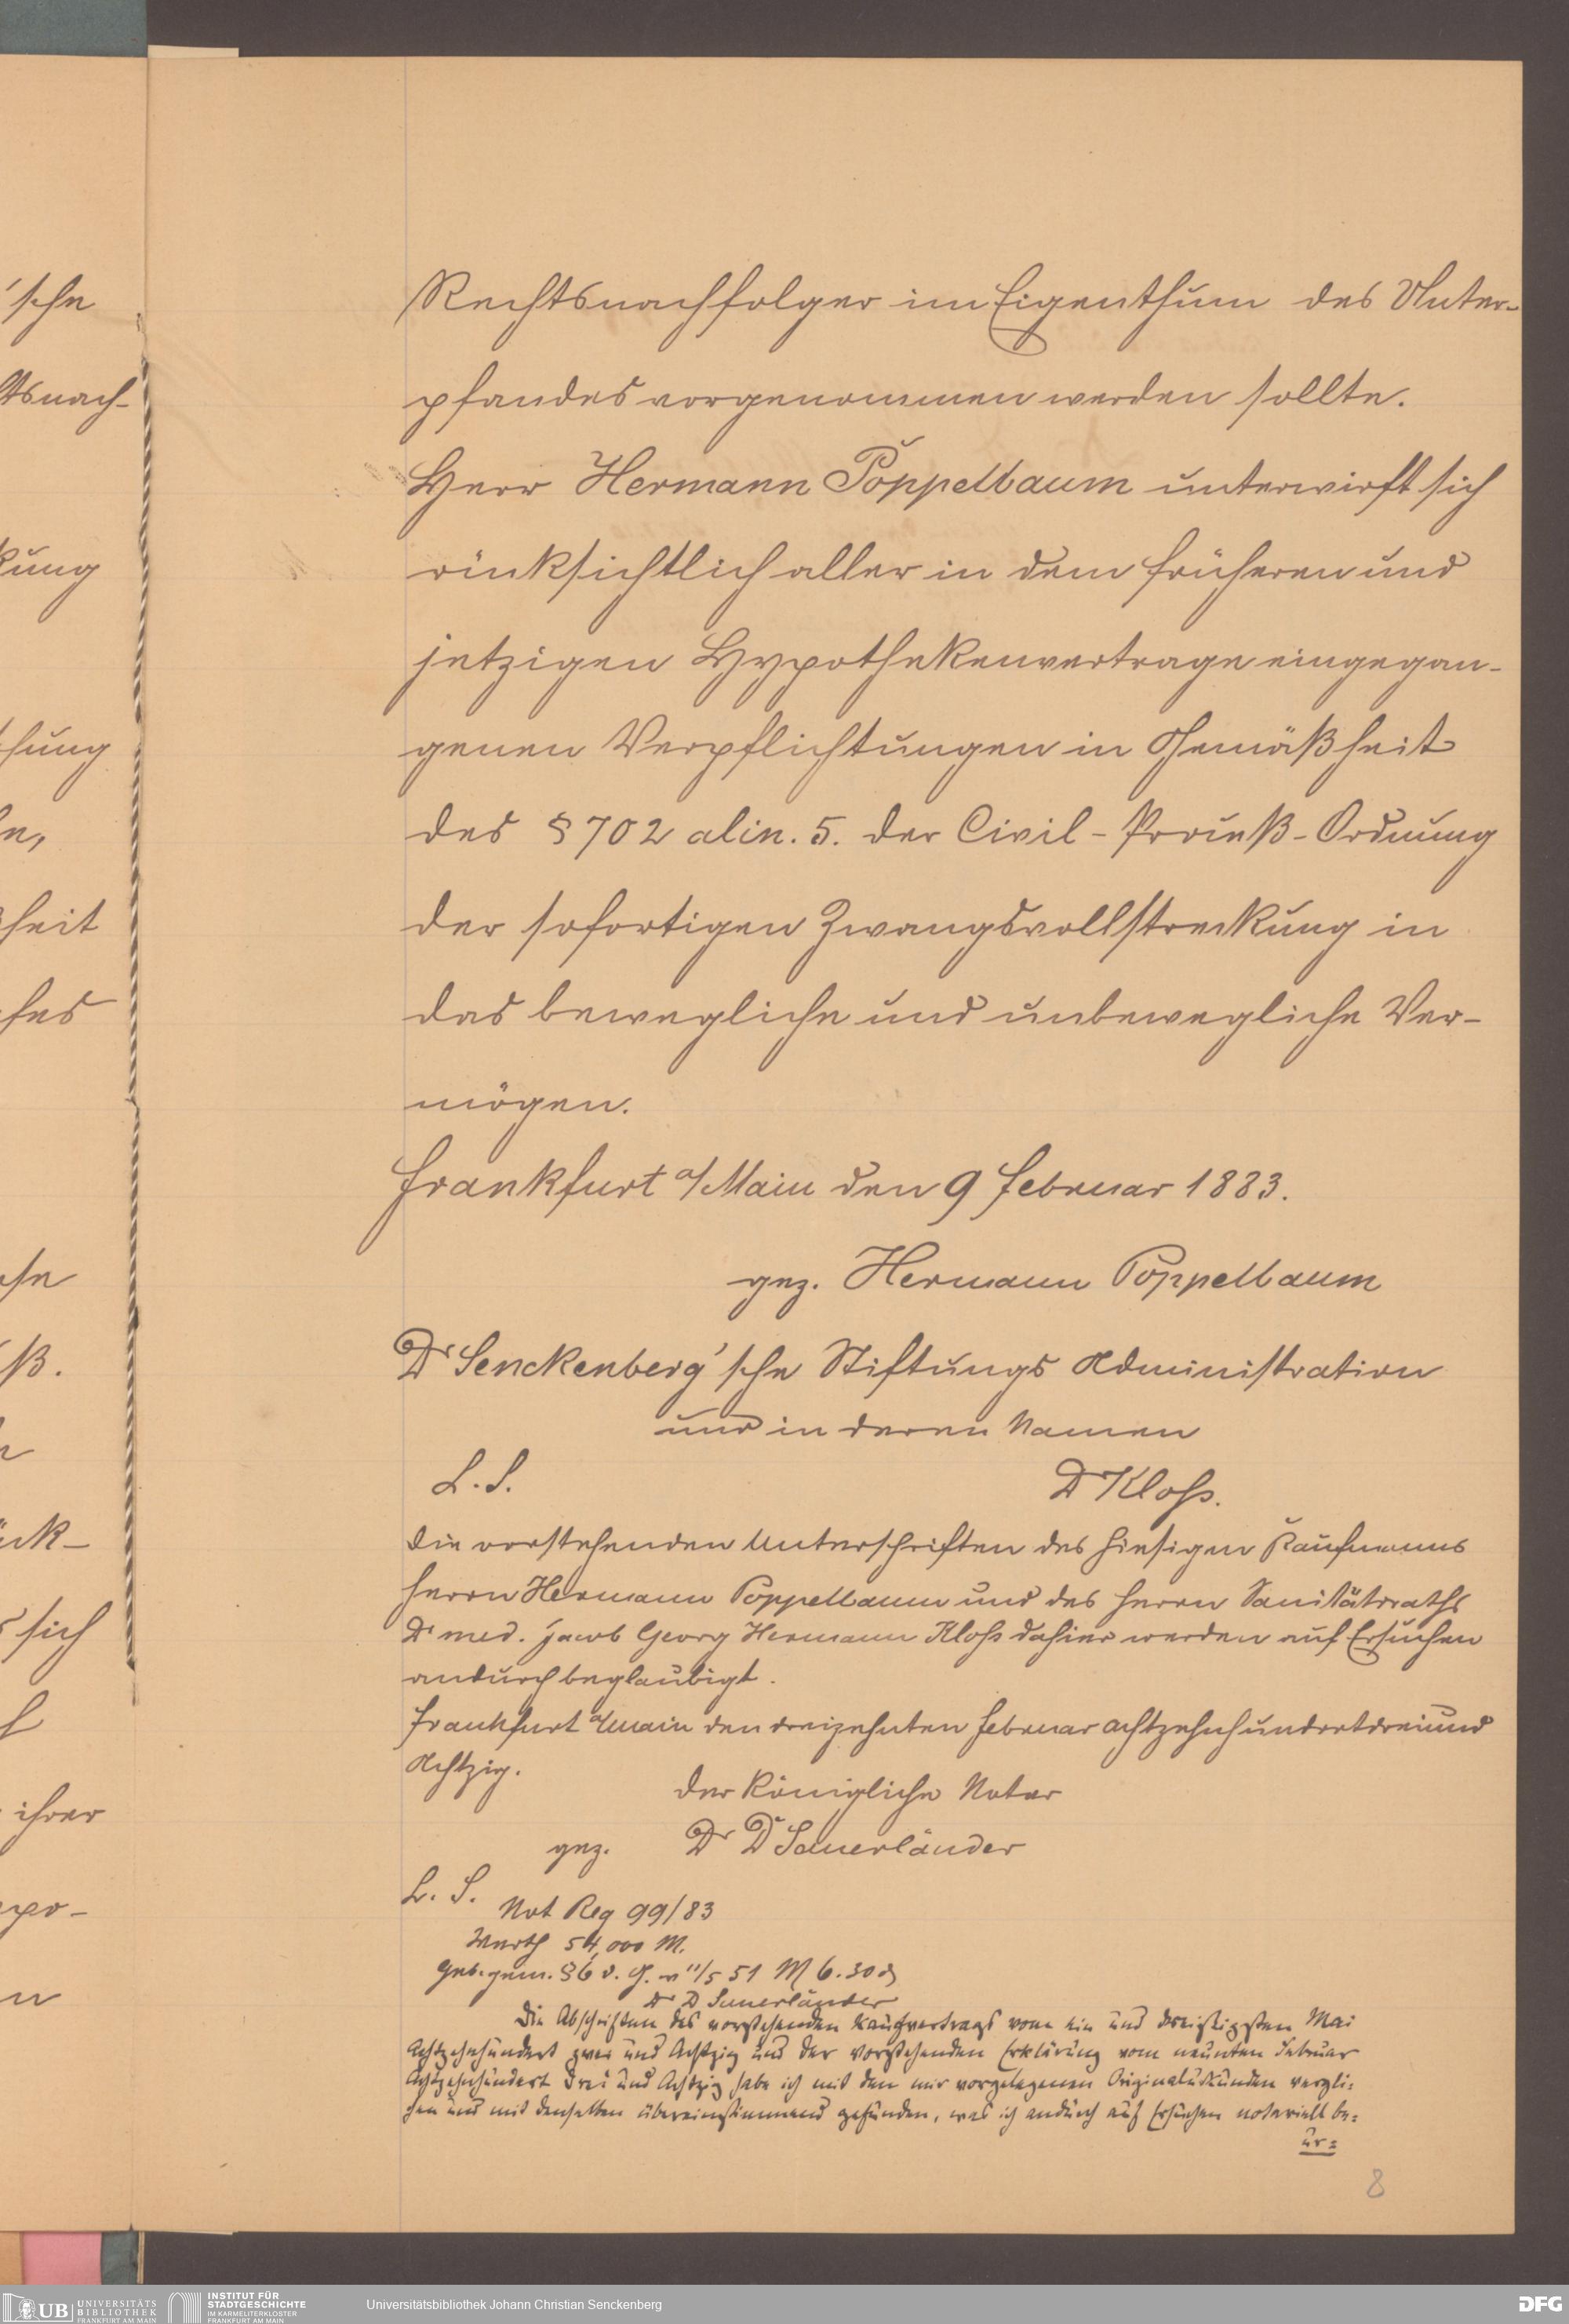 'sche
tsnach-
kung
chung
le,
heit
ches
che
ß.
ück-
s sich
ihrer
Rechtsnachfolger im Eigenthum des Unter-
pfandes vorgenommen werden sollte.
Herr Hermann Poppelbaum unterwirft sich
rücksichtlich aller in dem früheren und
jetzigen Hypothekenvertrage eingegan-
genen Verpflichtungen in Gemäßheit
des § 702 alin. 5. der Civil-Proceß-Ordnung
der sofortigen Zwangsvollstreckung in
das bewegliche und unbewegliche Ver-
mögen.
Frankfurt a/Main den 9 Februar 1883.
gez. Hermann Poppelbaum
Dr Senckenberg'sche Stiftungs Administration
und in deren Namen
L. S. Dr Kloß.
Die vorstehenden Unterschriften des hiesigen Kaufmanns
Herrn Hermann Poppelbaum und des Herrn Sanitätsraths
Dr med. Jacob Georg Hermann Kloß dahier werden auf Ersuchen
andurch beglaubigt.
Frankfurt a/Main den dreizehnten Februar achtzehnhundertdreiund
Achtzig.
Der Königliche Notar
gez. Dr D Sauerländer
L. S.
Not Reg 99/83
Werth 54,000 M.
Geb. gem. § 6 d. G. v 11/5 51 M 6.30 ₰
Dr D Sauerländer
Die Abschriften des vorstehenden Kaufvertrags vom ein und dreißigsten Mai
Achtzehnhundert zwei und Achtzig und der vorstehenden Erklärung vom neunten Februar
Achtzehnhundert Drei und Achtzig habe ich mit den mir vorgelegenen Originalurkunden vergli=
chen und mit denselben übereinstimmend gefunden, was ich andurch auf Ersuchen notariell be=
ur=
8
UB UNIVERSITÄTS
BIBLIOTHEK
FRANKFURT AM MAIN
INSTITUT FÜR
STADTGESCHICHTE
IM KARMELITERKLOSTER
FRANKFURT AM MAIN
Universitätsbibliothek Johann Christian Senckenberg
DFG